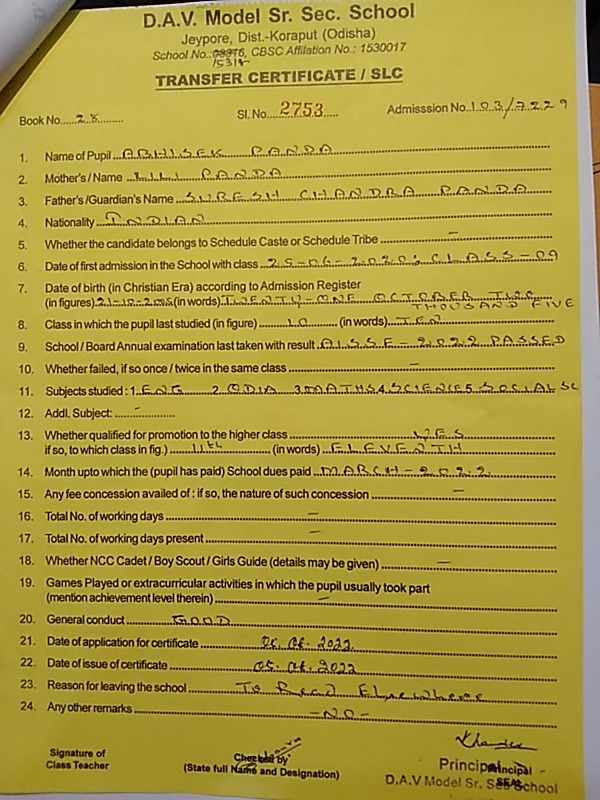 D.A.V. Model Sr. Sec. School
Jeypore, Dist.-Koraput (Odisha)
School No.: CBSC Affilation No.: 1530017
15315
TRANSFER CERTIFICATE / SLC
Book No.....28......... Sl. No....2753..... Admisssion No.103/7229
1. Name of Pupil ABHISEK PANDA
2. Mother's / Name LILI PANDA
3. Father's /Guardian's Name SURESH CHANDRA PANDA
4. Nationality INDIAN
5. Whether the candidate belongs to Schedule Caste or Schedule Tribe —
6. Date of first admission in the School with class 25-06-2020; CLASS-09
7. Date of birth (in Christian Era) according to Admission Register
(in figures) 21-10-2005 (in words) TWENTY-ONE OCTOBER TWO
THOUSAND FIVE
8. Class in which the pupil last studied (in figure) 10 (in words) TEN
9. School / Board Annual examination last taken with result AISSE-2022 PASSED
10. Whether failed, if so once / twice in the same class —
11. Subjects studied : 1. ENG 2. ODIA 3. MATHS 4. SCIENCE 5. SOCIAL SC
12. Addl. Subject: -
13. Whether qualified for promotion to the higher class YES
if so, to which class in fig.) 11th (in words) ELEVENTH
14. Month upto which the (pupil has paid) School dues paid MARCH-2022
15. Any fee concession availed of : if so, the nature of such concession —
16. Total No. of working days —
17. Total No. of working days present —
18. Whether NCC Cadet / Boy Scout / Girls Guide (details may be given) —
19. Games Played or extracurricular activities in which the pupil usually took part
(mention achievement level therein) —
20. General conduct GOOD
21. Date of application for certificate 2022
22. Date of issue of certificate 2022
23. Reason for leaving the school To Read Elsewhere
24. Any other remarks -NO-
Signature of
Class Teacher
Checked by
(State full Name and Designation)
Principal
Principal
SEAL
D.A.V Model Sr. Sec School